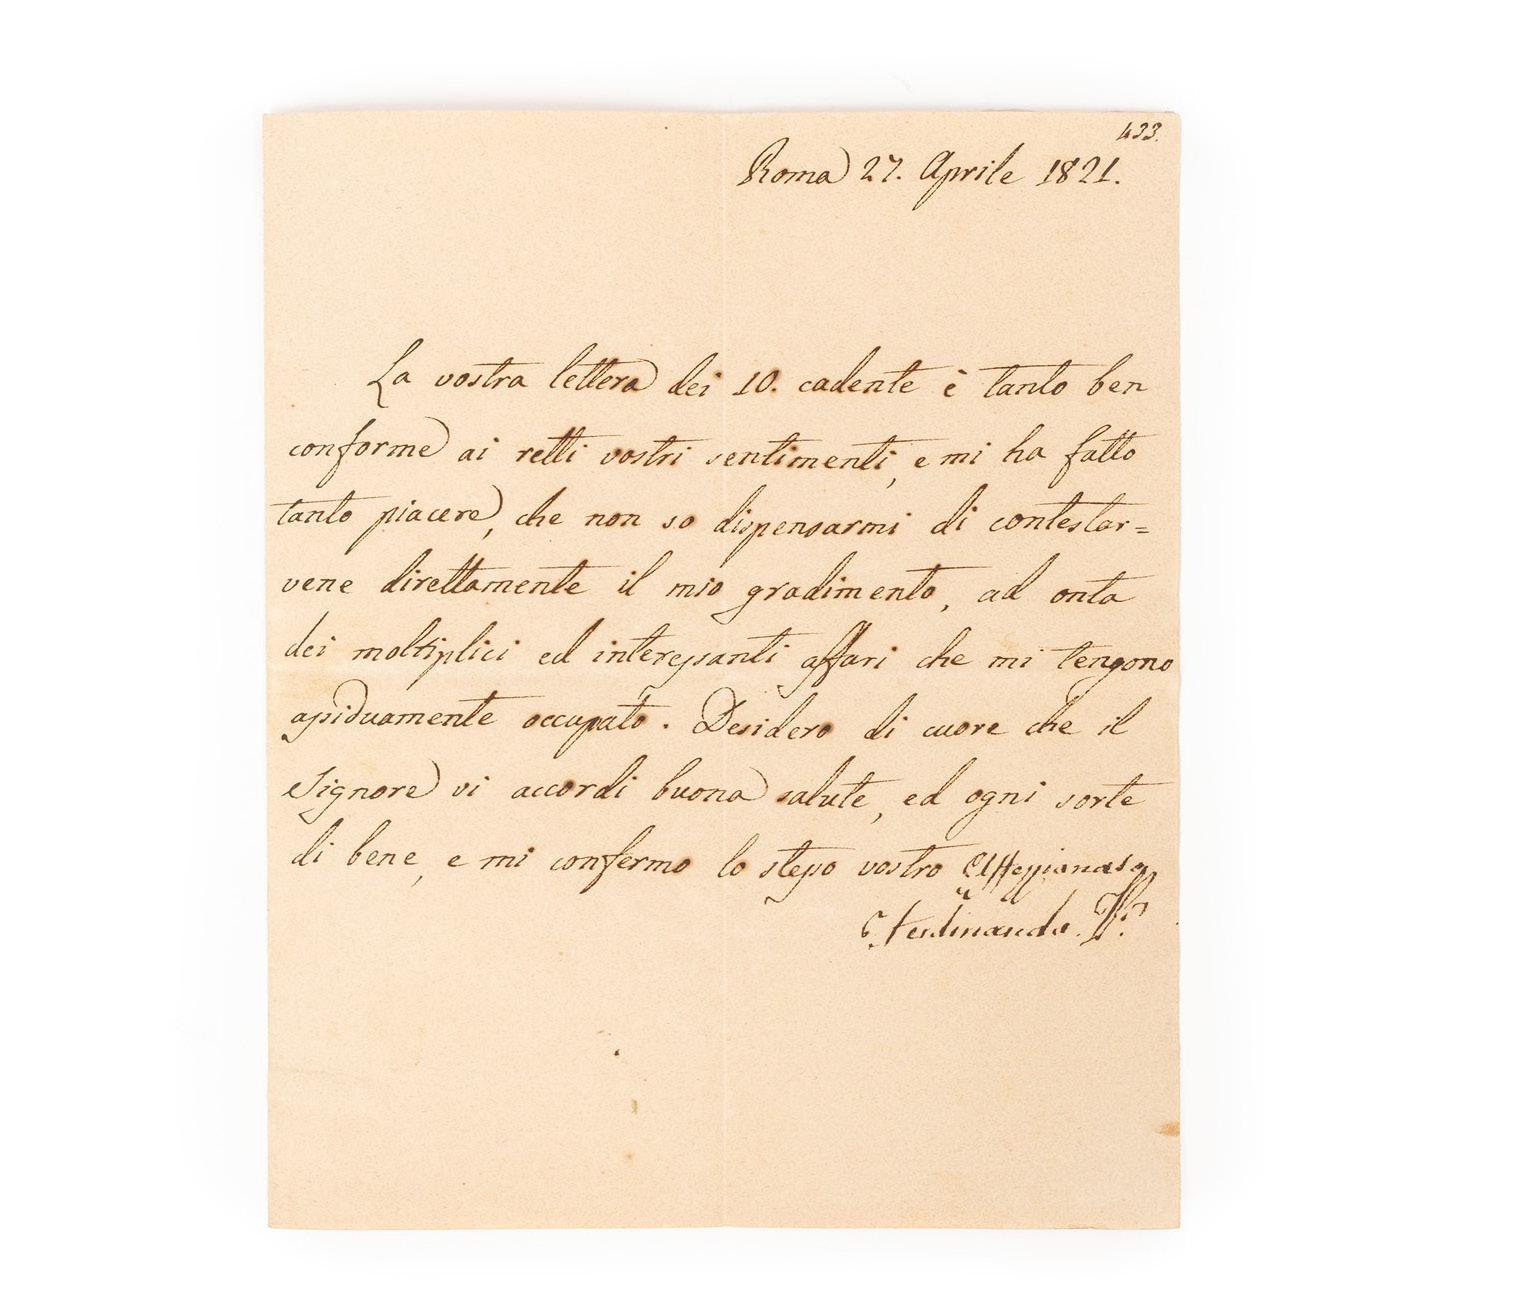 433.
Roma 27. Aprile 1821.
La vostra lettera dei 10. cadente è tanto ben
conforme ai retti vostri sentimenti, e mi ha fatto
tanto piacere, che non so dispensarmi di contestar=
vene direttamente il mio gradimento, ad onta
dei moltiplici ed interessanti affari che mi tengono
assiduamente occupato. Desidero di cuore che il
Signore vi accordi buona salute, ed ogni sorte
di bene, e mi confermo lo stesso vostro
Ferdinando